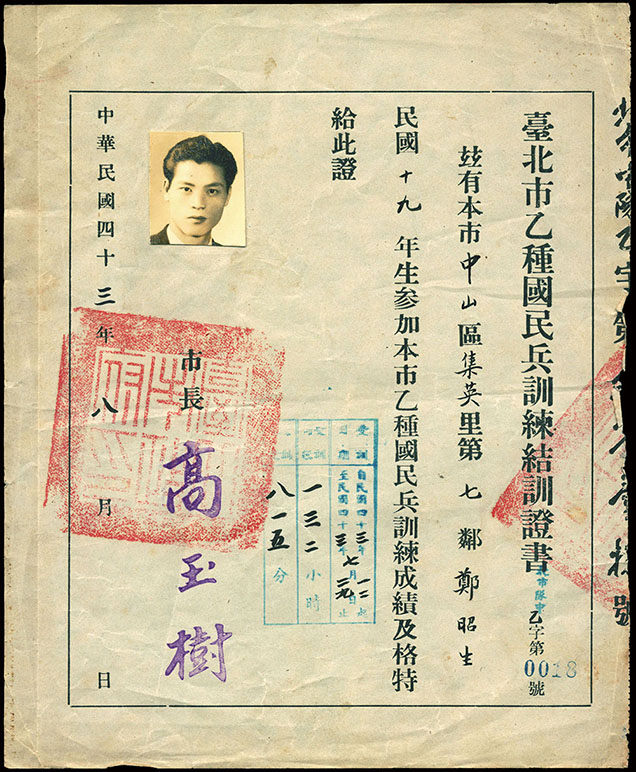 臺北市乙種國民兵訓練結訓證書
北市隊中乙字第0018號
玆有本市中山區集英里第七鄰鄭昭生
民國十九年生參加本市乙種國民兵訓練成績及格特
給此證
受訓日期
自民國四十三年 一二起
至民國四十三年七月二九日止
一三二小時
八一五分
市長 高玉樹
中華民國四十三年八月 日